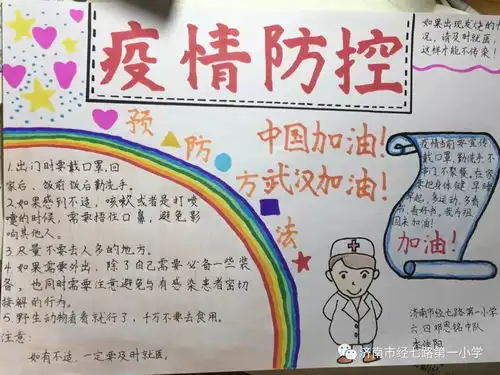 疫情防控
如果出现发烧的情
况，请及时就医，
这样才能不传染！
预
防
方
法
中国加油！
武汉加油！
1.出门时要戴口罩，回
家后、饭前饭后勤洗手。
2.如果感到不适，咳嗽或者是打喷
嚏的时候，需要捂住口鼻，避免影
响其他人。
3.尽量不要去人多的地方。
4.如果需要外出，除了自己需要必备一些装
备，也同时需要注意避免与有感染患者密切
接触的行为。
5.野生动物看看就行了，千万不要去食用。
注意：
如有不适，一定要及时就医。
疫情当前要宣传
戴口罩，勤洗手，不
串门不聚餐，在家
要把身体健，早睡
早起，多运动，多看
书，看好书，我为祖
国来加油！
加油！
济南市经七路第一小学
六.四邓恩铭中队
济南市经七路第一小学